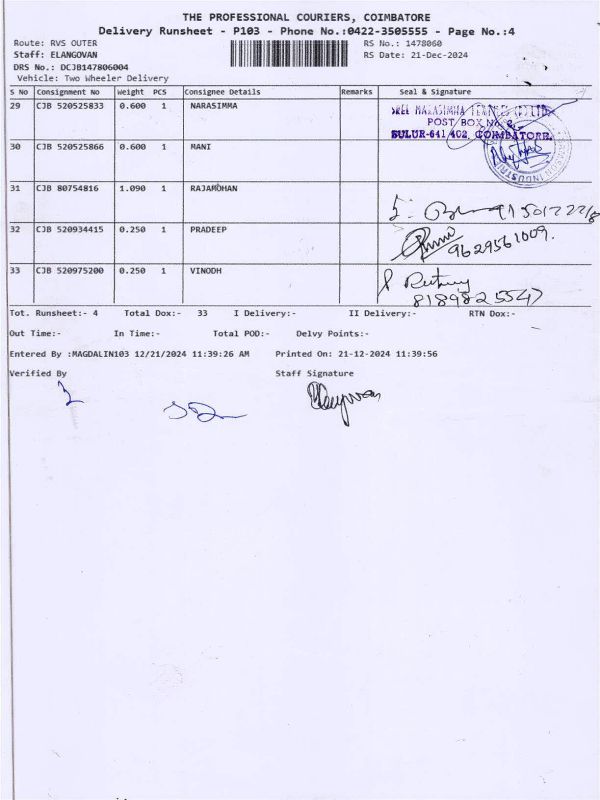 THE PROFESSIONAL COURIERS, COIMBATORE
Delivery Runsheet - P103 - Phone No.:0422-3505555 - Page No.:4
Route: RVS OUTER
RS No.: 1478060
Staff: ELANGOVAN
RS Date: 21-Dec-2024
DRS No.: DCJB147806004
Vehicle: Two Wheeler Delivery
S No Consignment No Weight PCS Consignee Details Remarks Seal & Signature
29 CJB 520525833 0.600 1 NARASIMMA
SREE NARASIMHA TEXTILES (P) LTD.
POST BOX No. 8,
SULUR-641 402, COIMBATORE.
30 CJB 520525866 0.600 1 MANI
31 CJB 80754816 1.090 1 RAJAMOHAN
32 CJB 520934415 0.250 1 PRADEEP
9629561009.
33 CJB 520975200 0.250 1 VINODH
8189825547
Tot. Runsheet:- 4 Total Dox:- 33 I Delivery:- II Delivery:- RTN Dox:-
Out Time:- In Time:- Total POD:- Delvy Points:-
Entered By :MAGDALIN103 12/21/2024 11:39:26 AM Printed On: 21-12-2024 11:39:56
Verified By Staff Signature